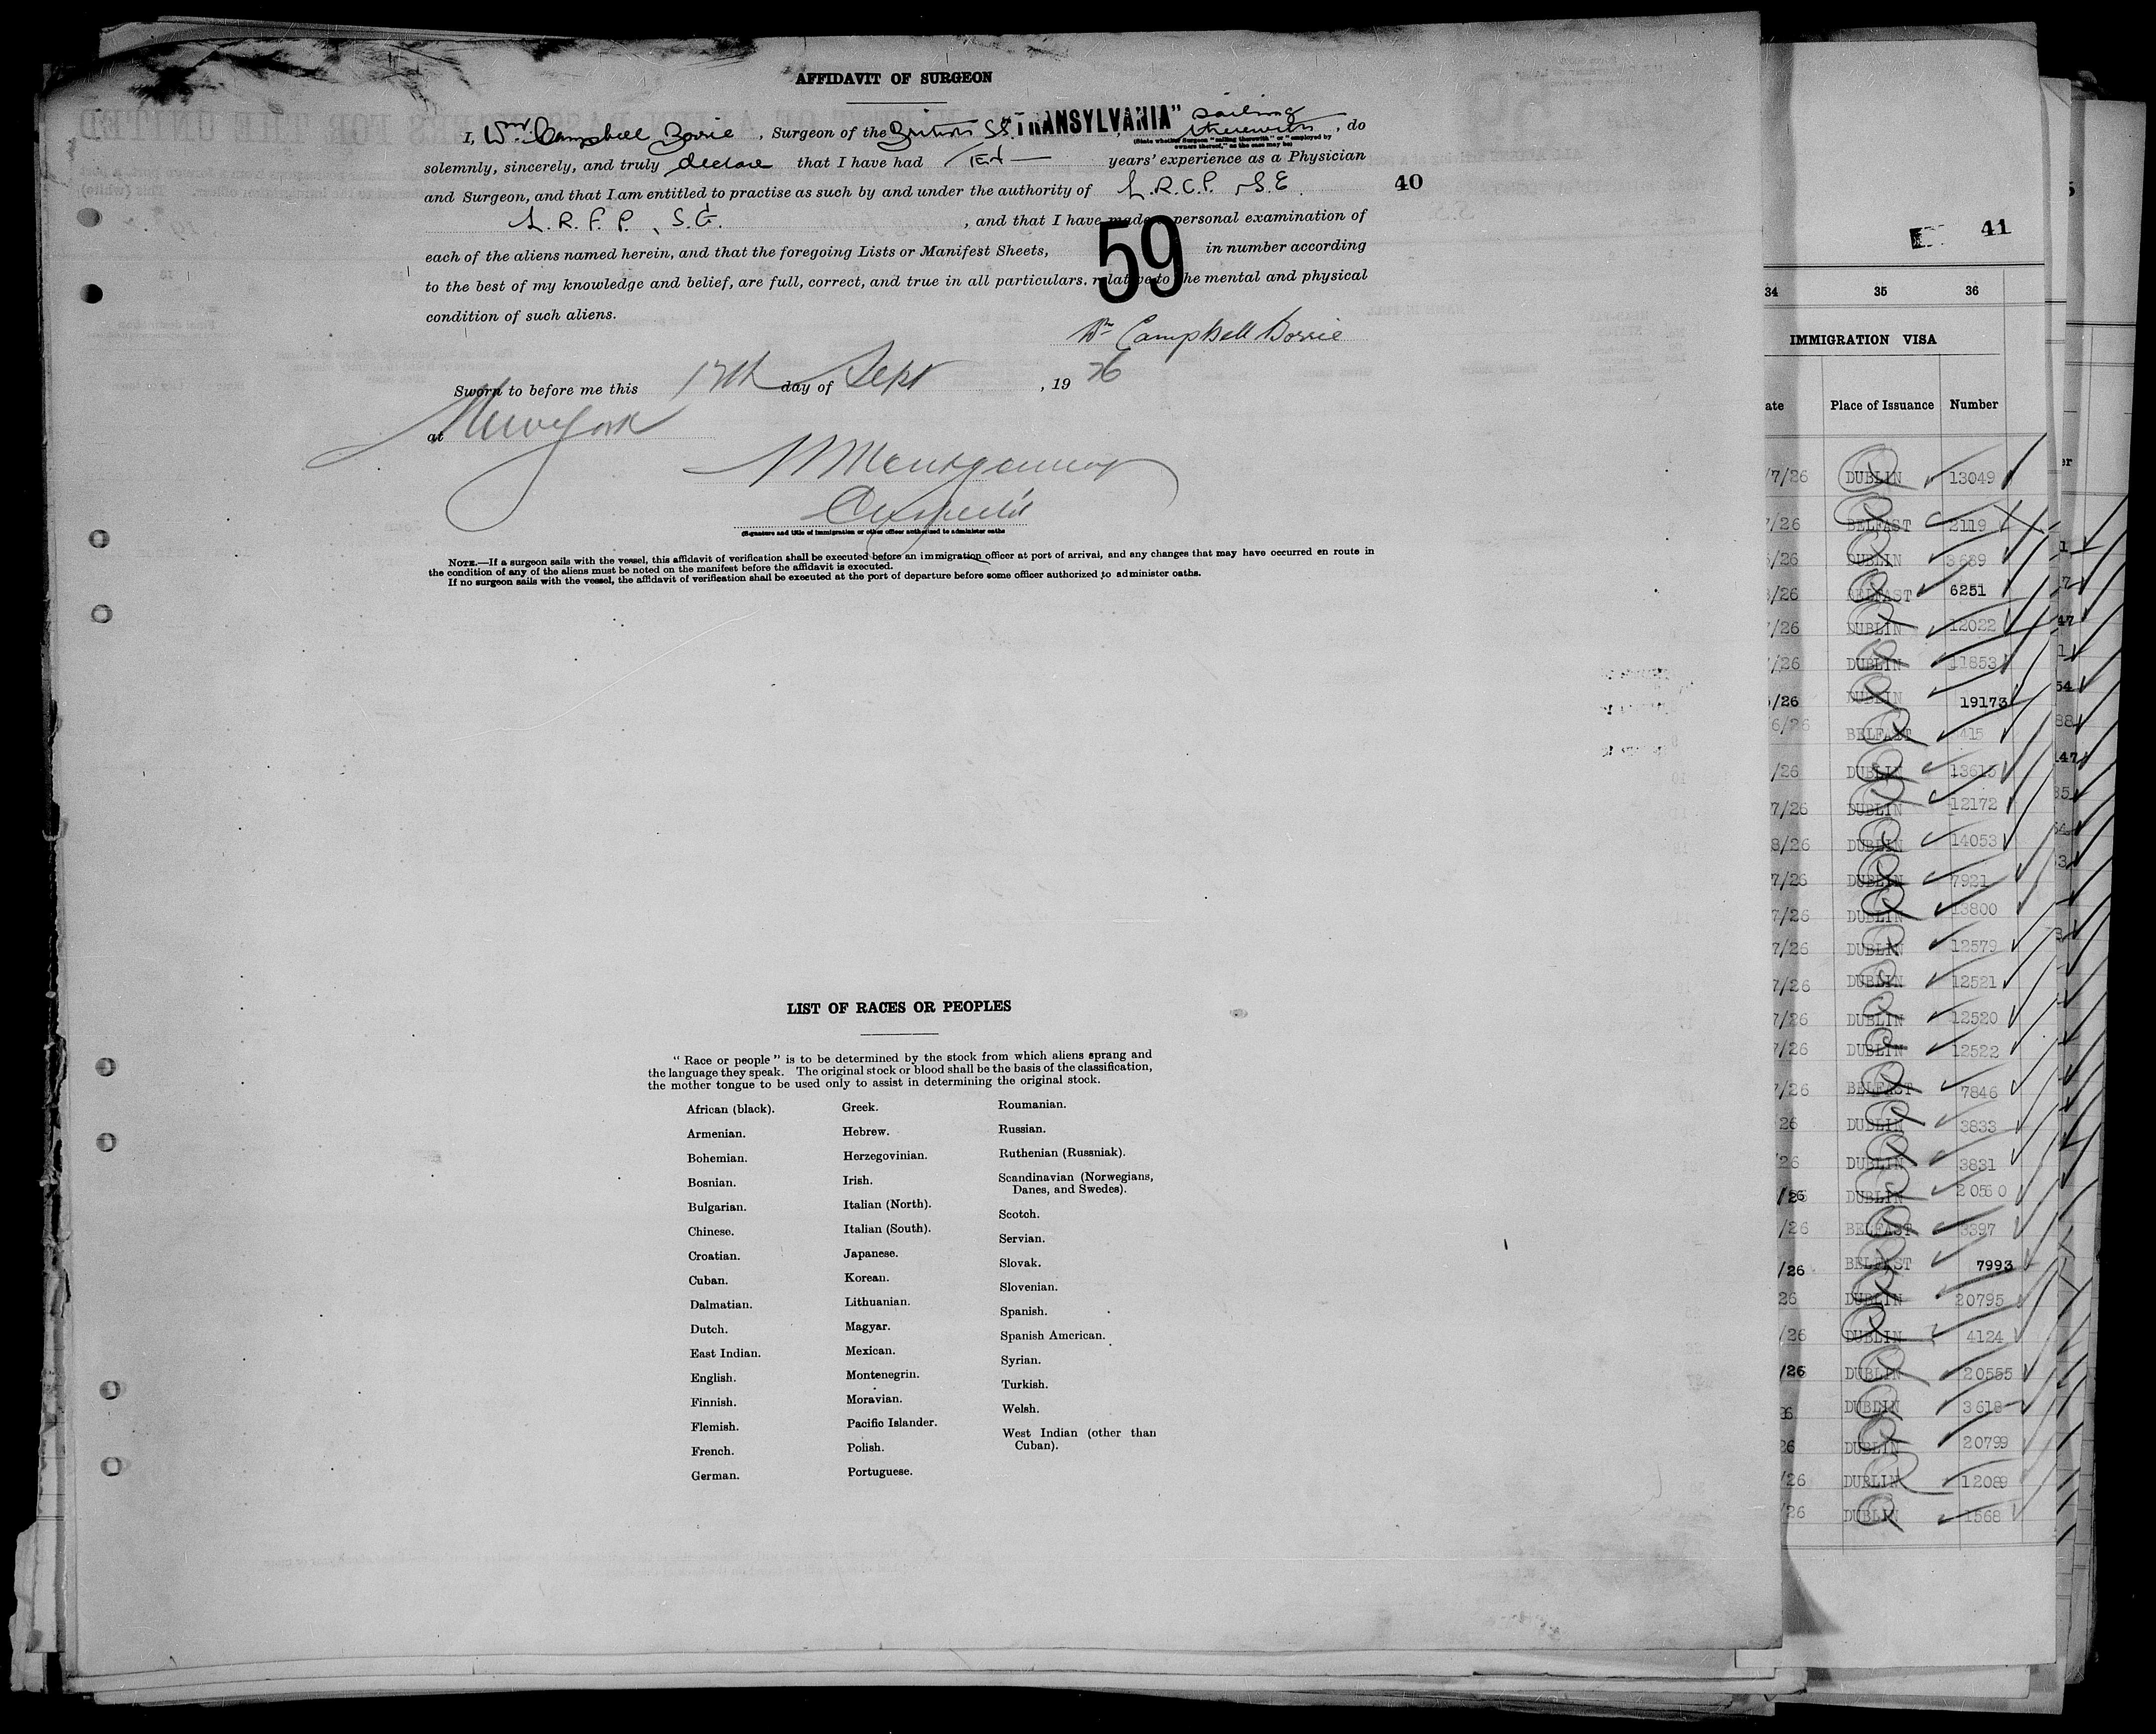 AFFIDAVIT OF SURGEON
I, Wm. Campbell Borrie, Surgeon of the British SS. "TRANSYLVANIA" sailing therewith, do
(State whether Surgeon "sailing therewith" or "employed by
owners thereof," as the case may be)
solemnly, sincerely, and truly declare that I have had Ten years' experience as a Physician
and Surgeon, and that I am entitled to practise as such by and under the authority of L.R.C.P. S.E.
40
L.R.F.P. S.G. , and that I have made personal examination of
each of the aliens named herein, and that the foregoing Lists or Manifest Sheets, 59 in number according
to the best of my knowledge and belief, are full, correct, and true in all particulars. relative to the mental and physical
condition of such aliens.
Wm Campbell Borrie
Sworn to before me this 17th day of Sept , 19 26
at New York
Montgomery
(Signature and title of immigration or other officer authorized to administer oaths
NOTE.—If a surgeon sails with the vessel, this affidavit of verification shall be executed before an immigration officer at port of arrival, and any changes that may have occurred en route in
the condition of any of the aliens must be noted on the manifest before the affidavit is executed.
If no surgeon sails with the vessel, the affidavit of verification shall be executed at the port of departure before some officer authorized to administer oaths.
LIST OF RACES OR PEOPLES
"Race or people" is to be determined by the stock from which aliens sprang and
the language they speak. The original stock or blood shall be the basis of the classification,
the mother tongue to be used only to assist in determining the original stock.
African (black).
Armenian.
Bohemian.
Bosnian.
Bulgarian.
Chinese.
Croatian.
Cuban.
Dalmatian.
Dutch.
East Indian.
English.
Finnish.
Flemish.
French.
German.
Greek.
Hebrew.
Herzegovinian.
Irish.
Italian (North).
Italian (South).
Japanese.
Korean.
Lithuanian.
Magyar.
Mexican.
Montenegrin.
Moravian.
Pacific Islander.
Polish.
Portuguese.
Roumanian.
Russian.
Ruthenian (Russniak).
Scandinavian (Norwegians,
Danes, and Swedes).
Scotch.
Servian.
Slovak.
Slovenian.
Spanish.
Spanish American.
Syrian.
Turkish.
Welsh.
West Indian (other than
Cuban).
41
34 35 36
IMMIGRATION VISA
ate Place of Issuance Number
/7/26 DUBLIN 13049
/26 BELFAST 2119
/26 DUBLIN 3689
/26 BELFAST 6251
/26 DUBLIN 12022
/26 DUBLIN 11853
/26 DUBLIN 19173
6/26 BELFAST 415
/26 DUBLIN 13615
7/26 DUBLIN 12172
8/26 DUBLIN 14053
7/26 DUBLIN 7921
7/26 DUBLIN 13800
7/26 DUBLIN 12579
7/26 DUBLIN 12521
7/26 DUBLIN 12520
7/26 DUBLIN 12522
7/26 BELFAST 7846
26 DUBLIN 3833
26 DUBLIN 3831
/26 DUBLIN 20560
/26 BELFAST 3397
/26 BELFAST 7993
26 DUBLIN 20795
/26 DUBLIN 4124
/26 DUBLIN 20555
26 DUBLIN 3618
26 DUBLIN 20799
/26 DUBLIN 12089
/26 DUBLIN 1568